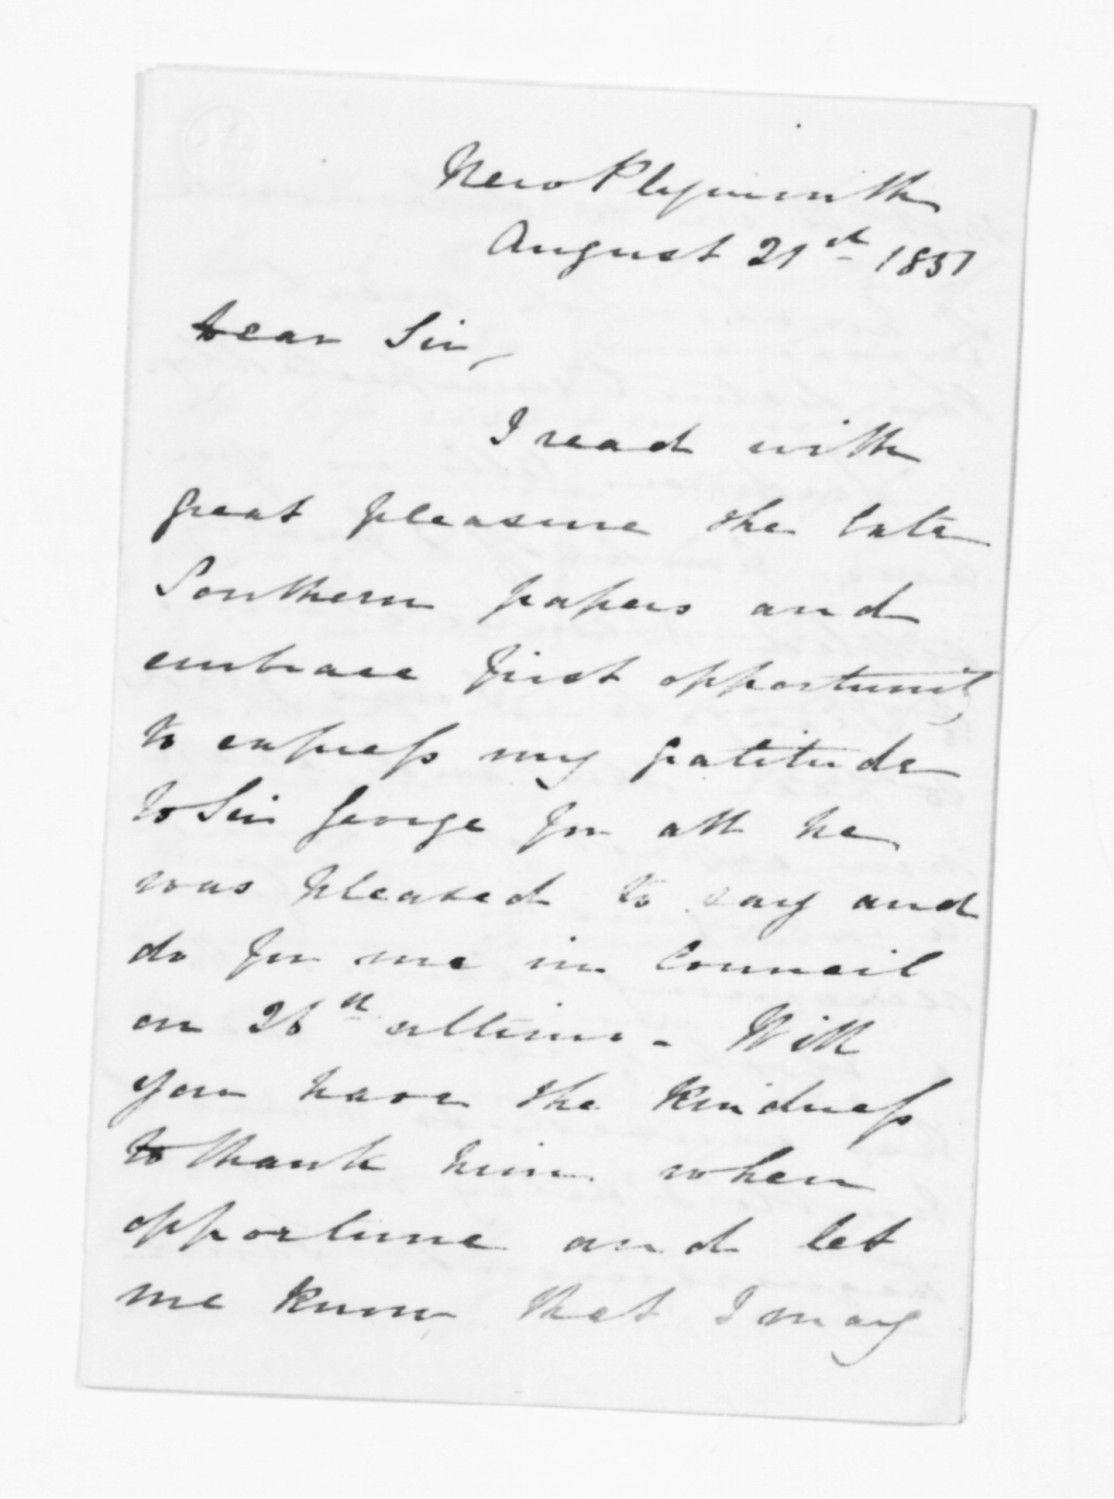 New Plymouth
August 21st 1851
Dear Sir,
I read with
great pleasure the late
Southern papers and
embrace first opportunity
to express my gratitude
to Sir George for all he
was pleased to say and
do for me in Council
on 26th ultimo - Will
you have the kindness
to thank him when
opportune and let
me know that I may